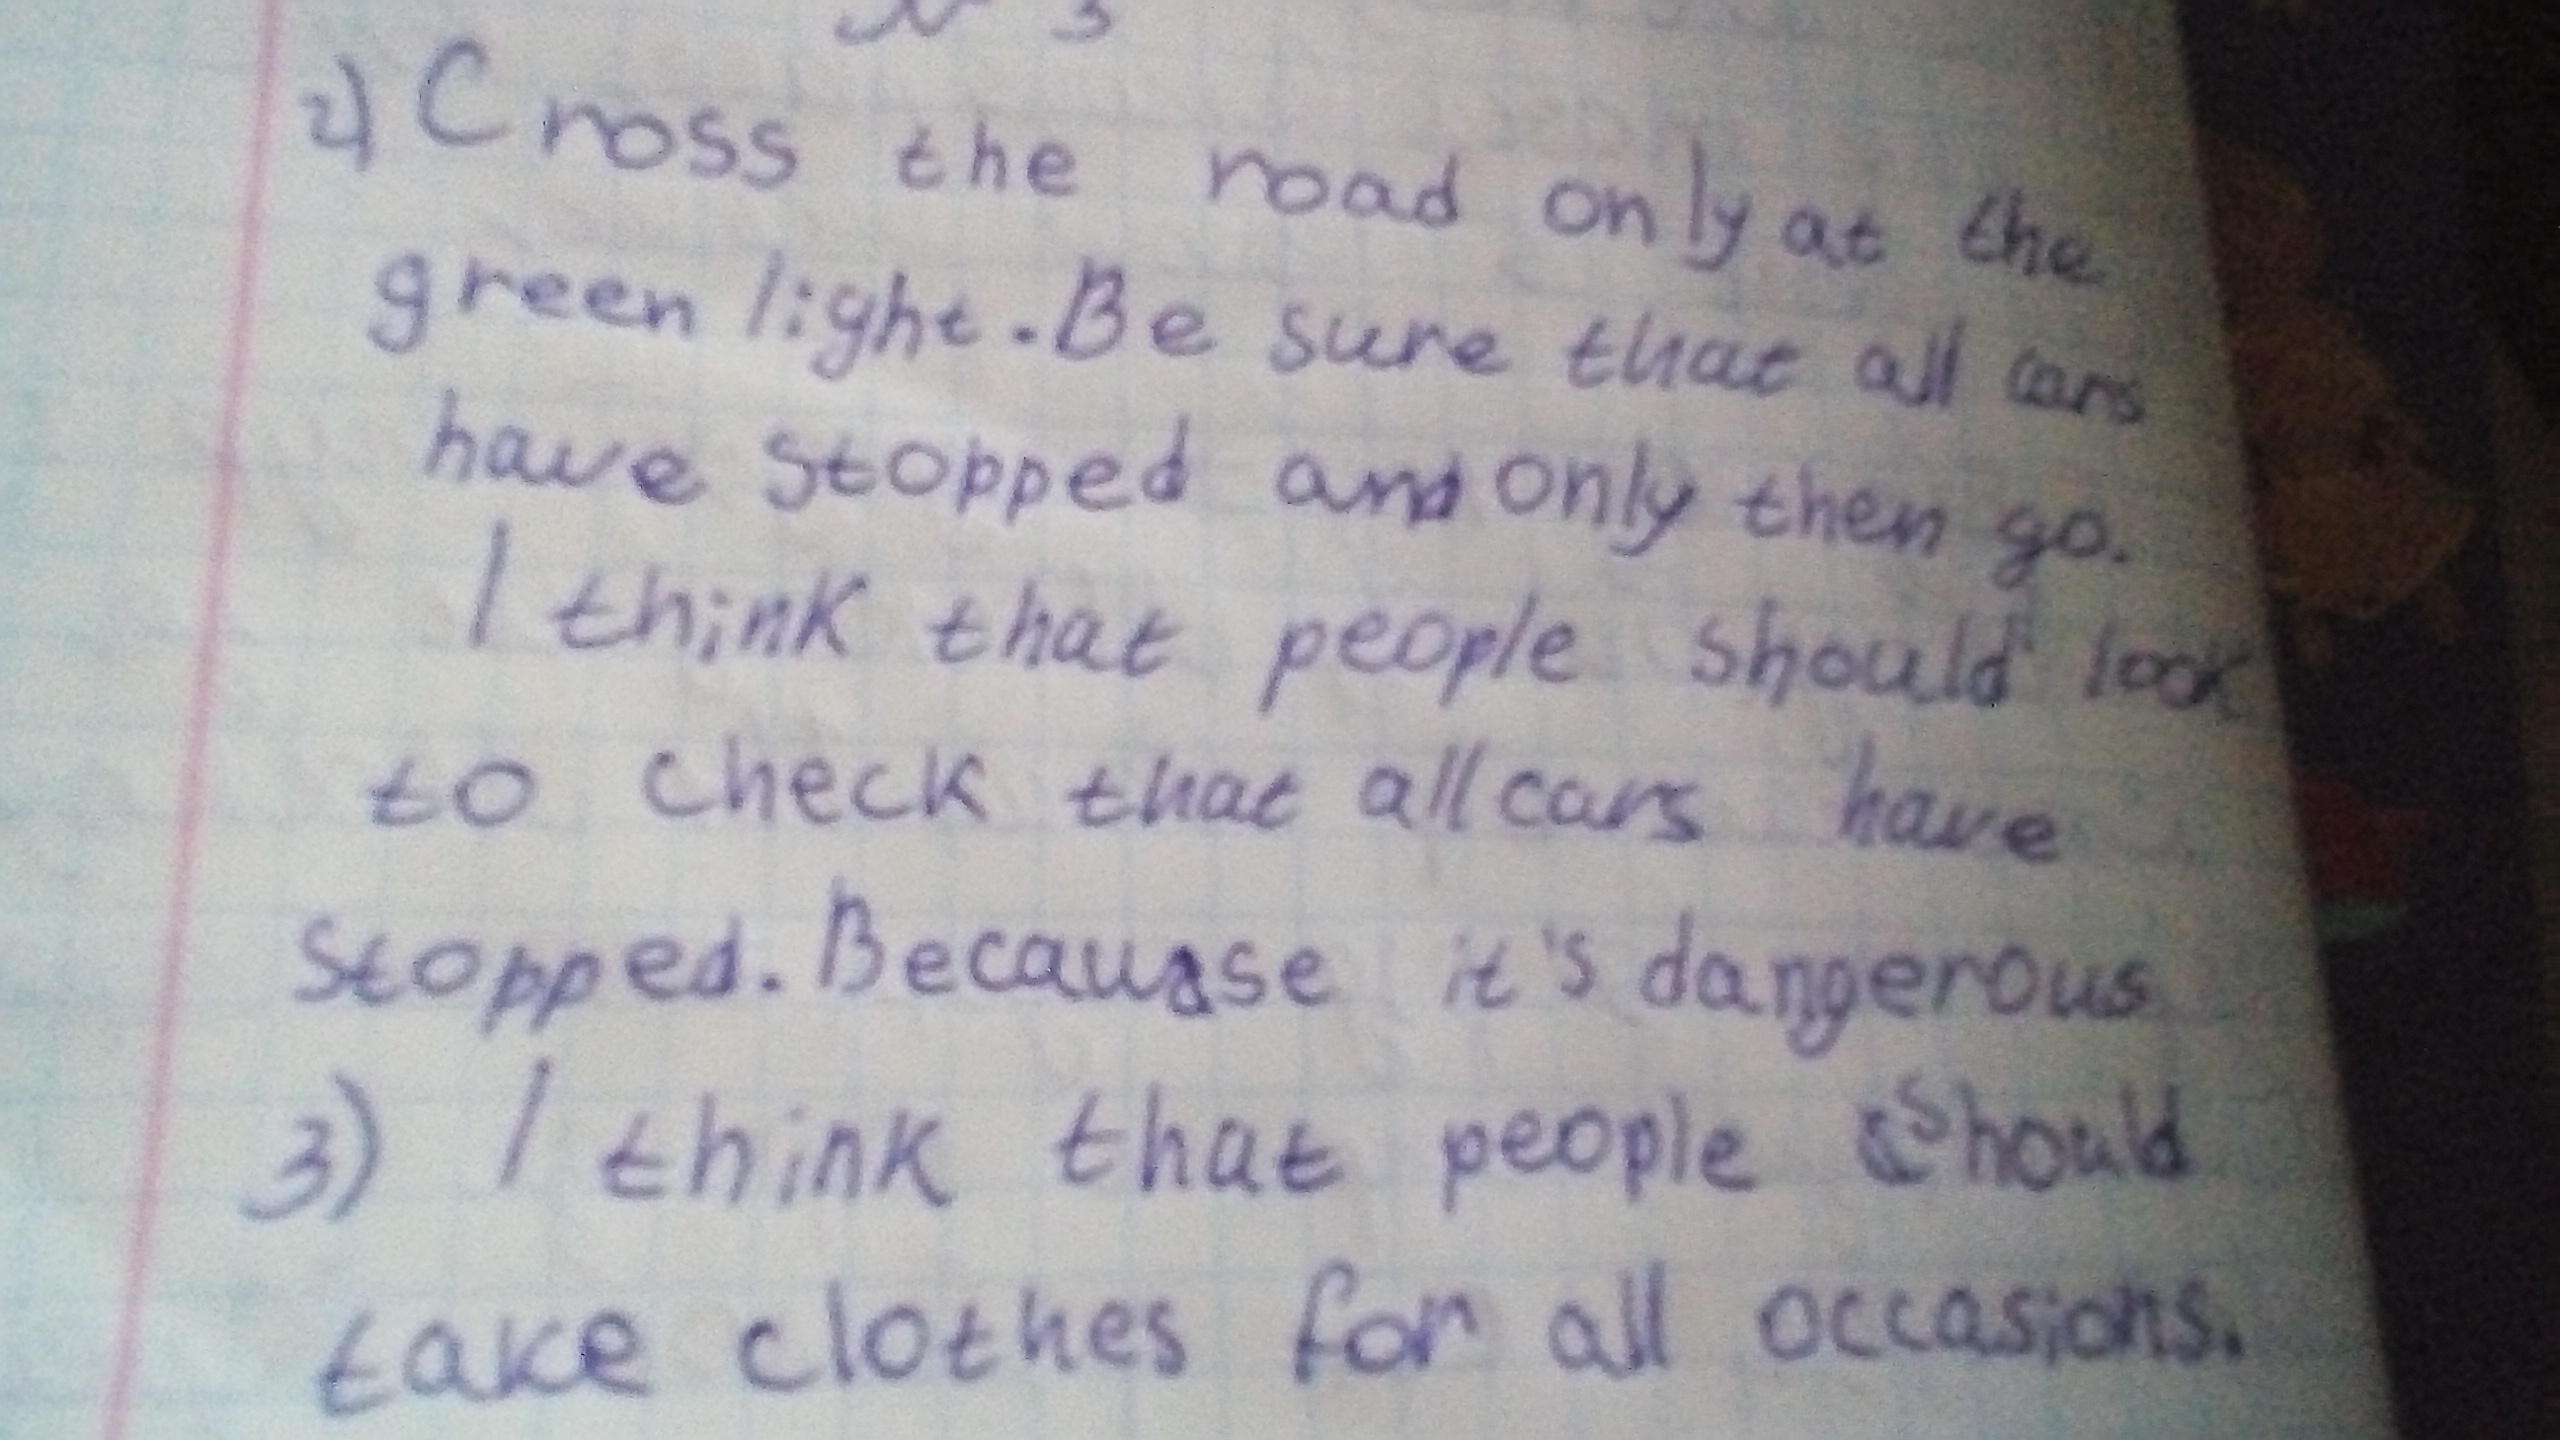 № 3
2) Cross the road only at the
green light. Be sure that all cars
have stopped and only then go.
I think that people should look
to check that all cars have
stopped. Becauase it's dangerous
3) I think that people should
take clothes for all occasions.